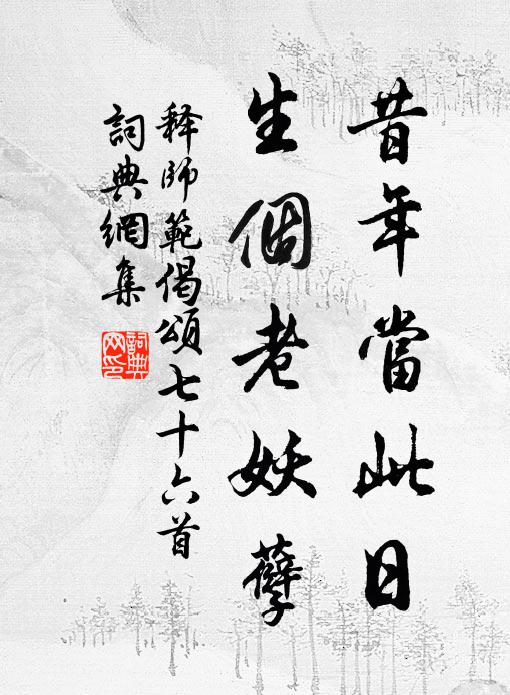 昔年當此日
生個老妖孽
釋師範偈頌七十六首
詞典網集
詞典网印